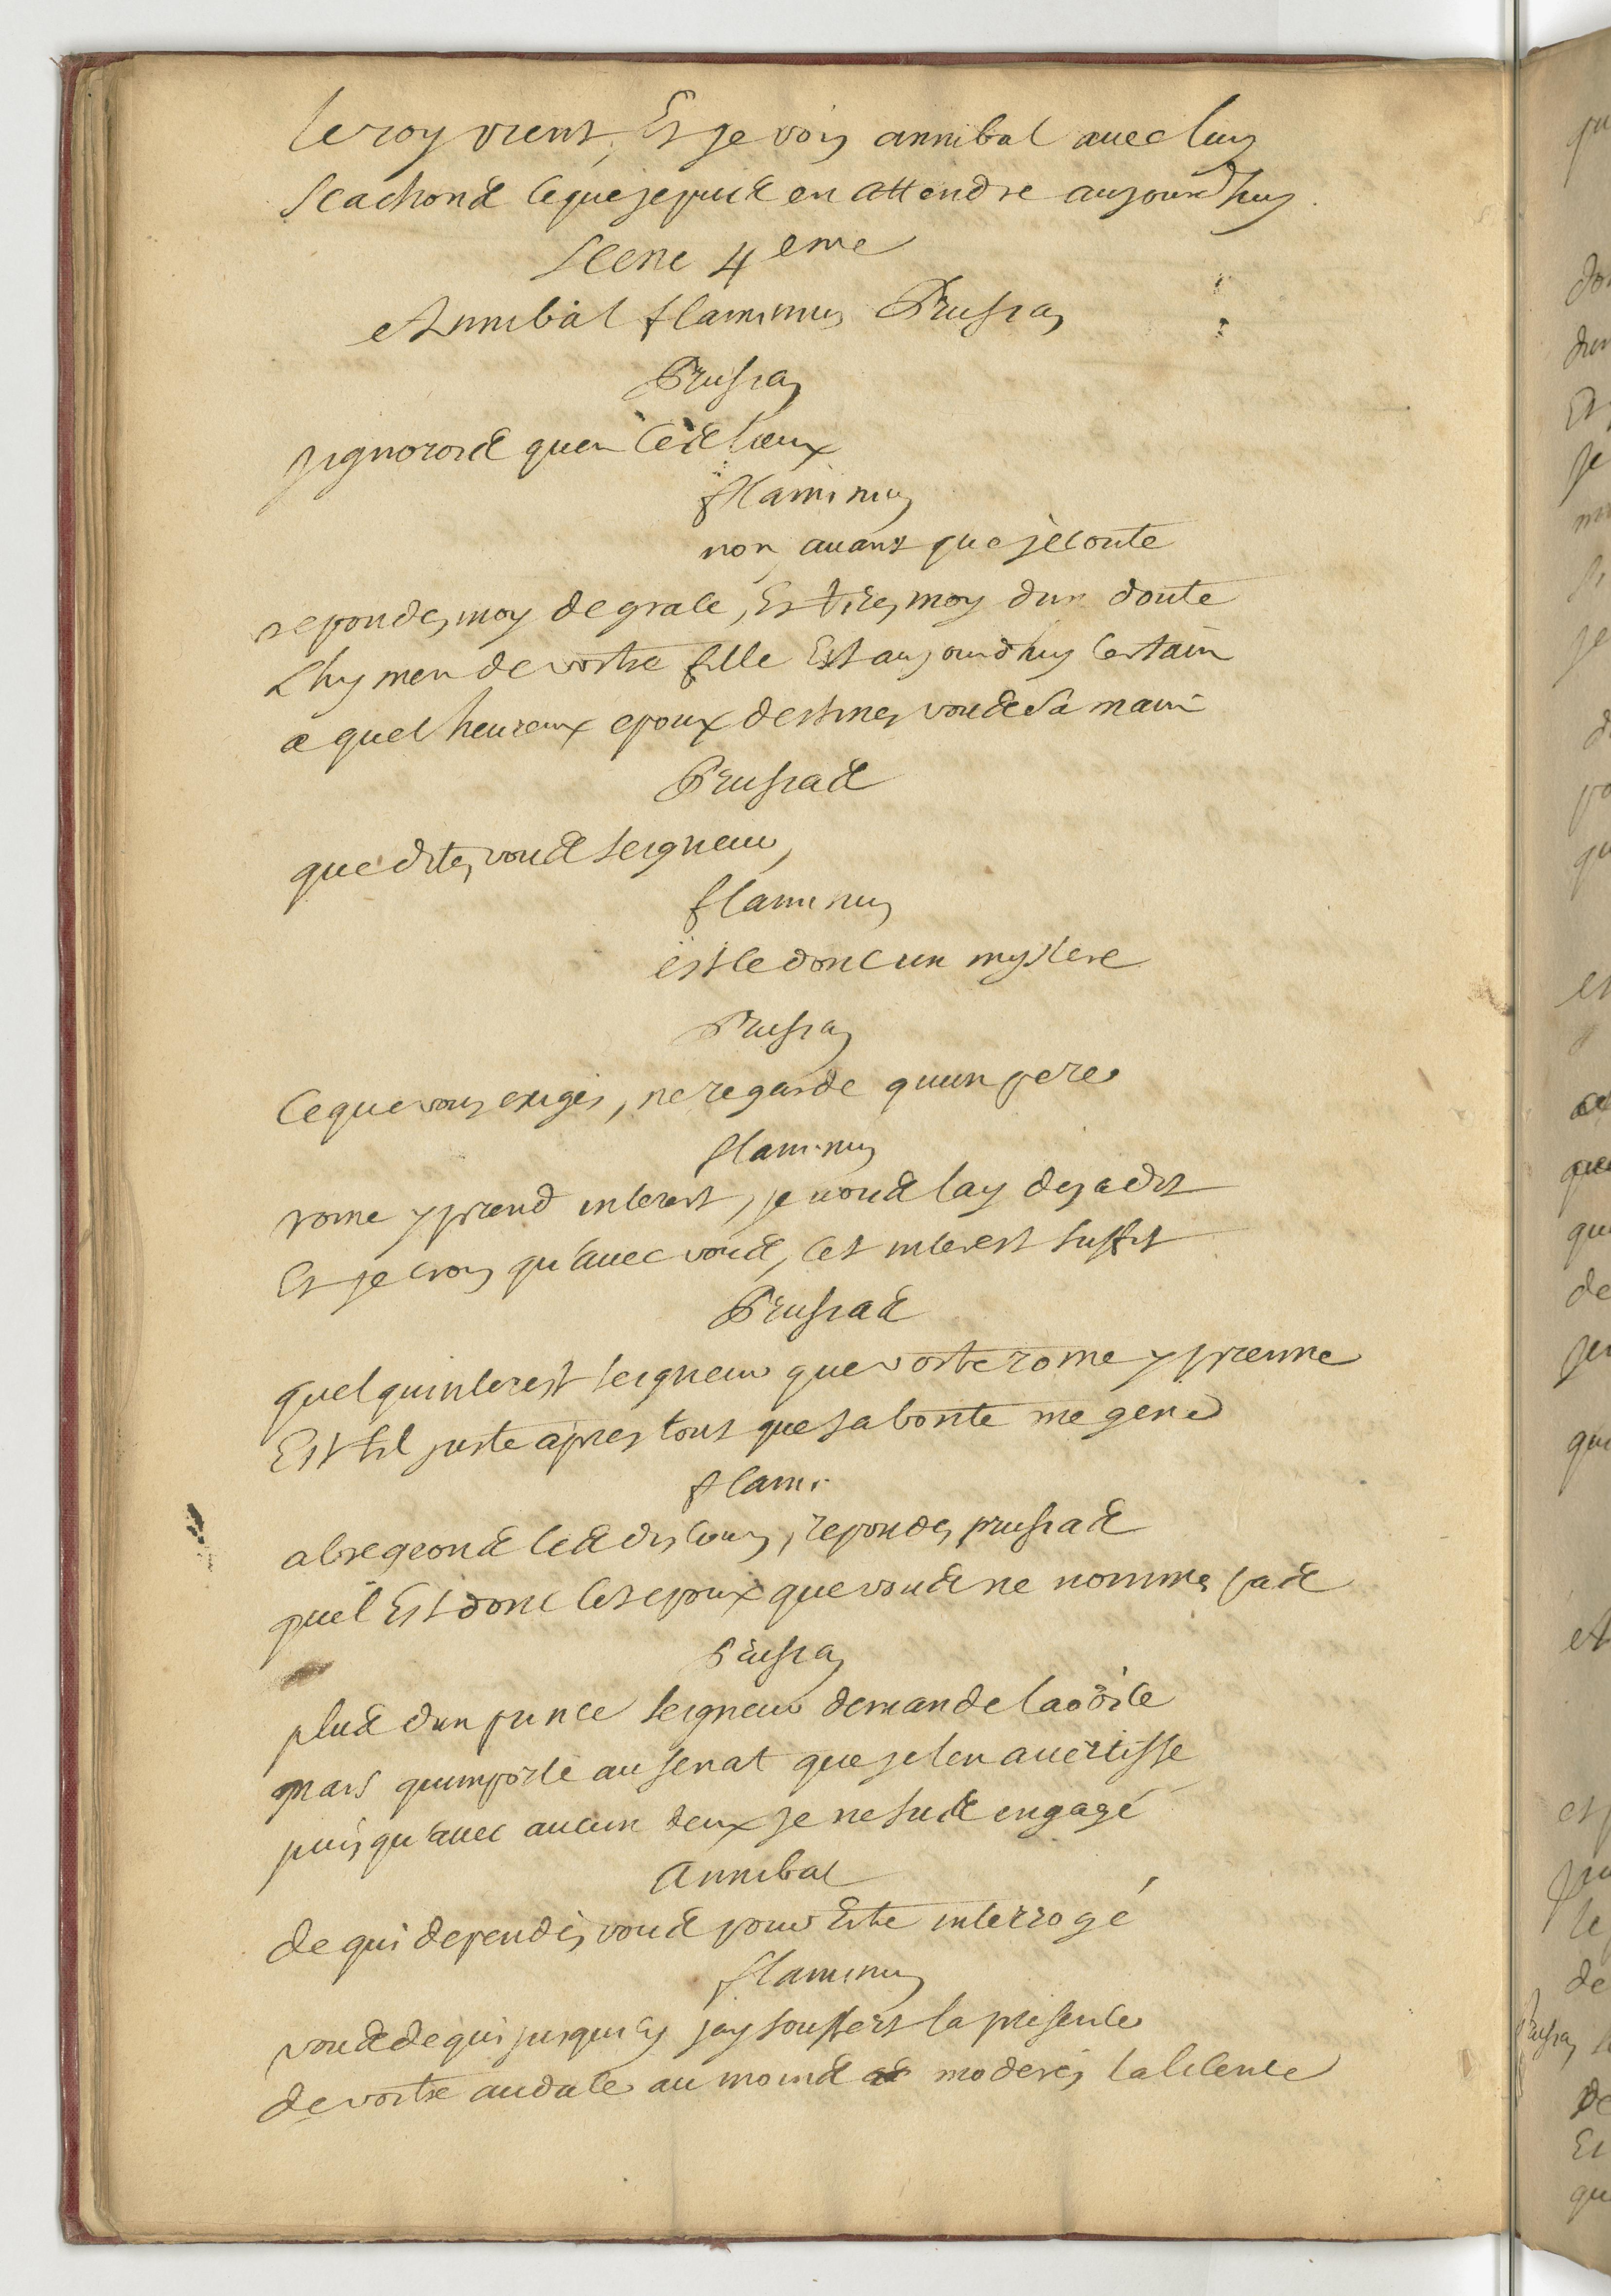 le roy vient, Et je vois annibal avec luy
scachons ce que je puis en attendre aujourdhuy.
Scene 4eme
Annibal flaminius Prusias
Prusias
jignorois quen ces lieux
flaminius
non, auant que jecoute
repondes moy de grace, Et tires moy dun doute
Lhymen de vostre fille Est aujourdhuy certain
a quel heureux epoux destines vous sa main
Prusias
que dites vous seigneur,
flaminius
est ce donc un mystere
Prusias
Ce que vous exiges, ne regarde quun pere
flaminius
rome y prend interest, je vous lay deja dit
Et je crois qu'auec vous, cet interest suffit
Prusias
quelquinterest seigneur que vostre rome y prenne
Est til juste apres tout que sa bonte me gene
flami
abregeons ces discours, repondes prusias
quel Est donc cet epoux que vous ne nommes pas
Prusias
plus dun prince seigneur demande laodice
mais quimporte au senat que je len auertisse
puis qu'auec aucun deux je ne suis engagé
Annibal
de qui dependes vous pour Estre interrogé
flaminius
vous de qui jusquicy jay souffert la presence
de vostre audace au moins moderes la licence